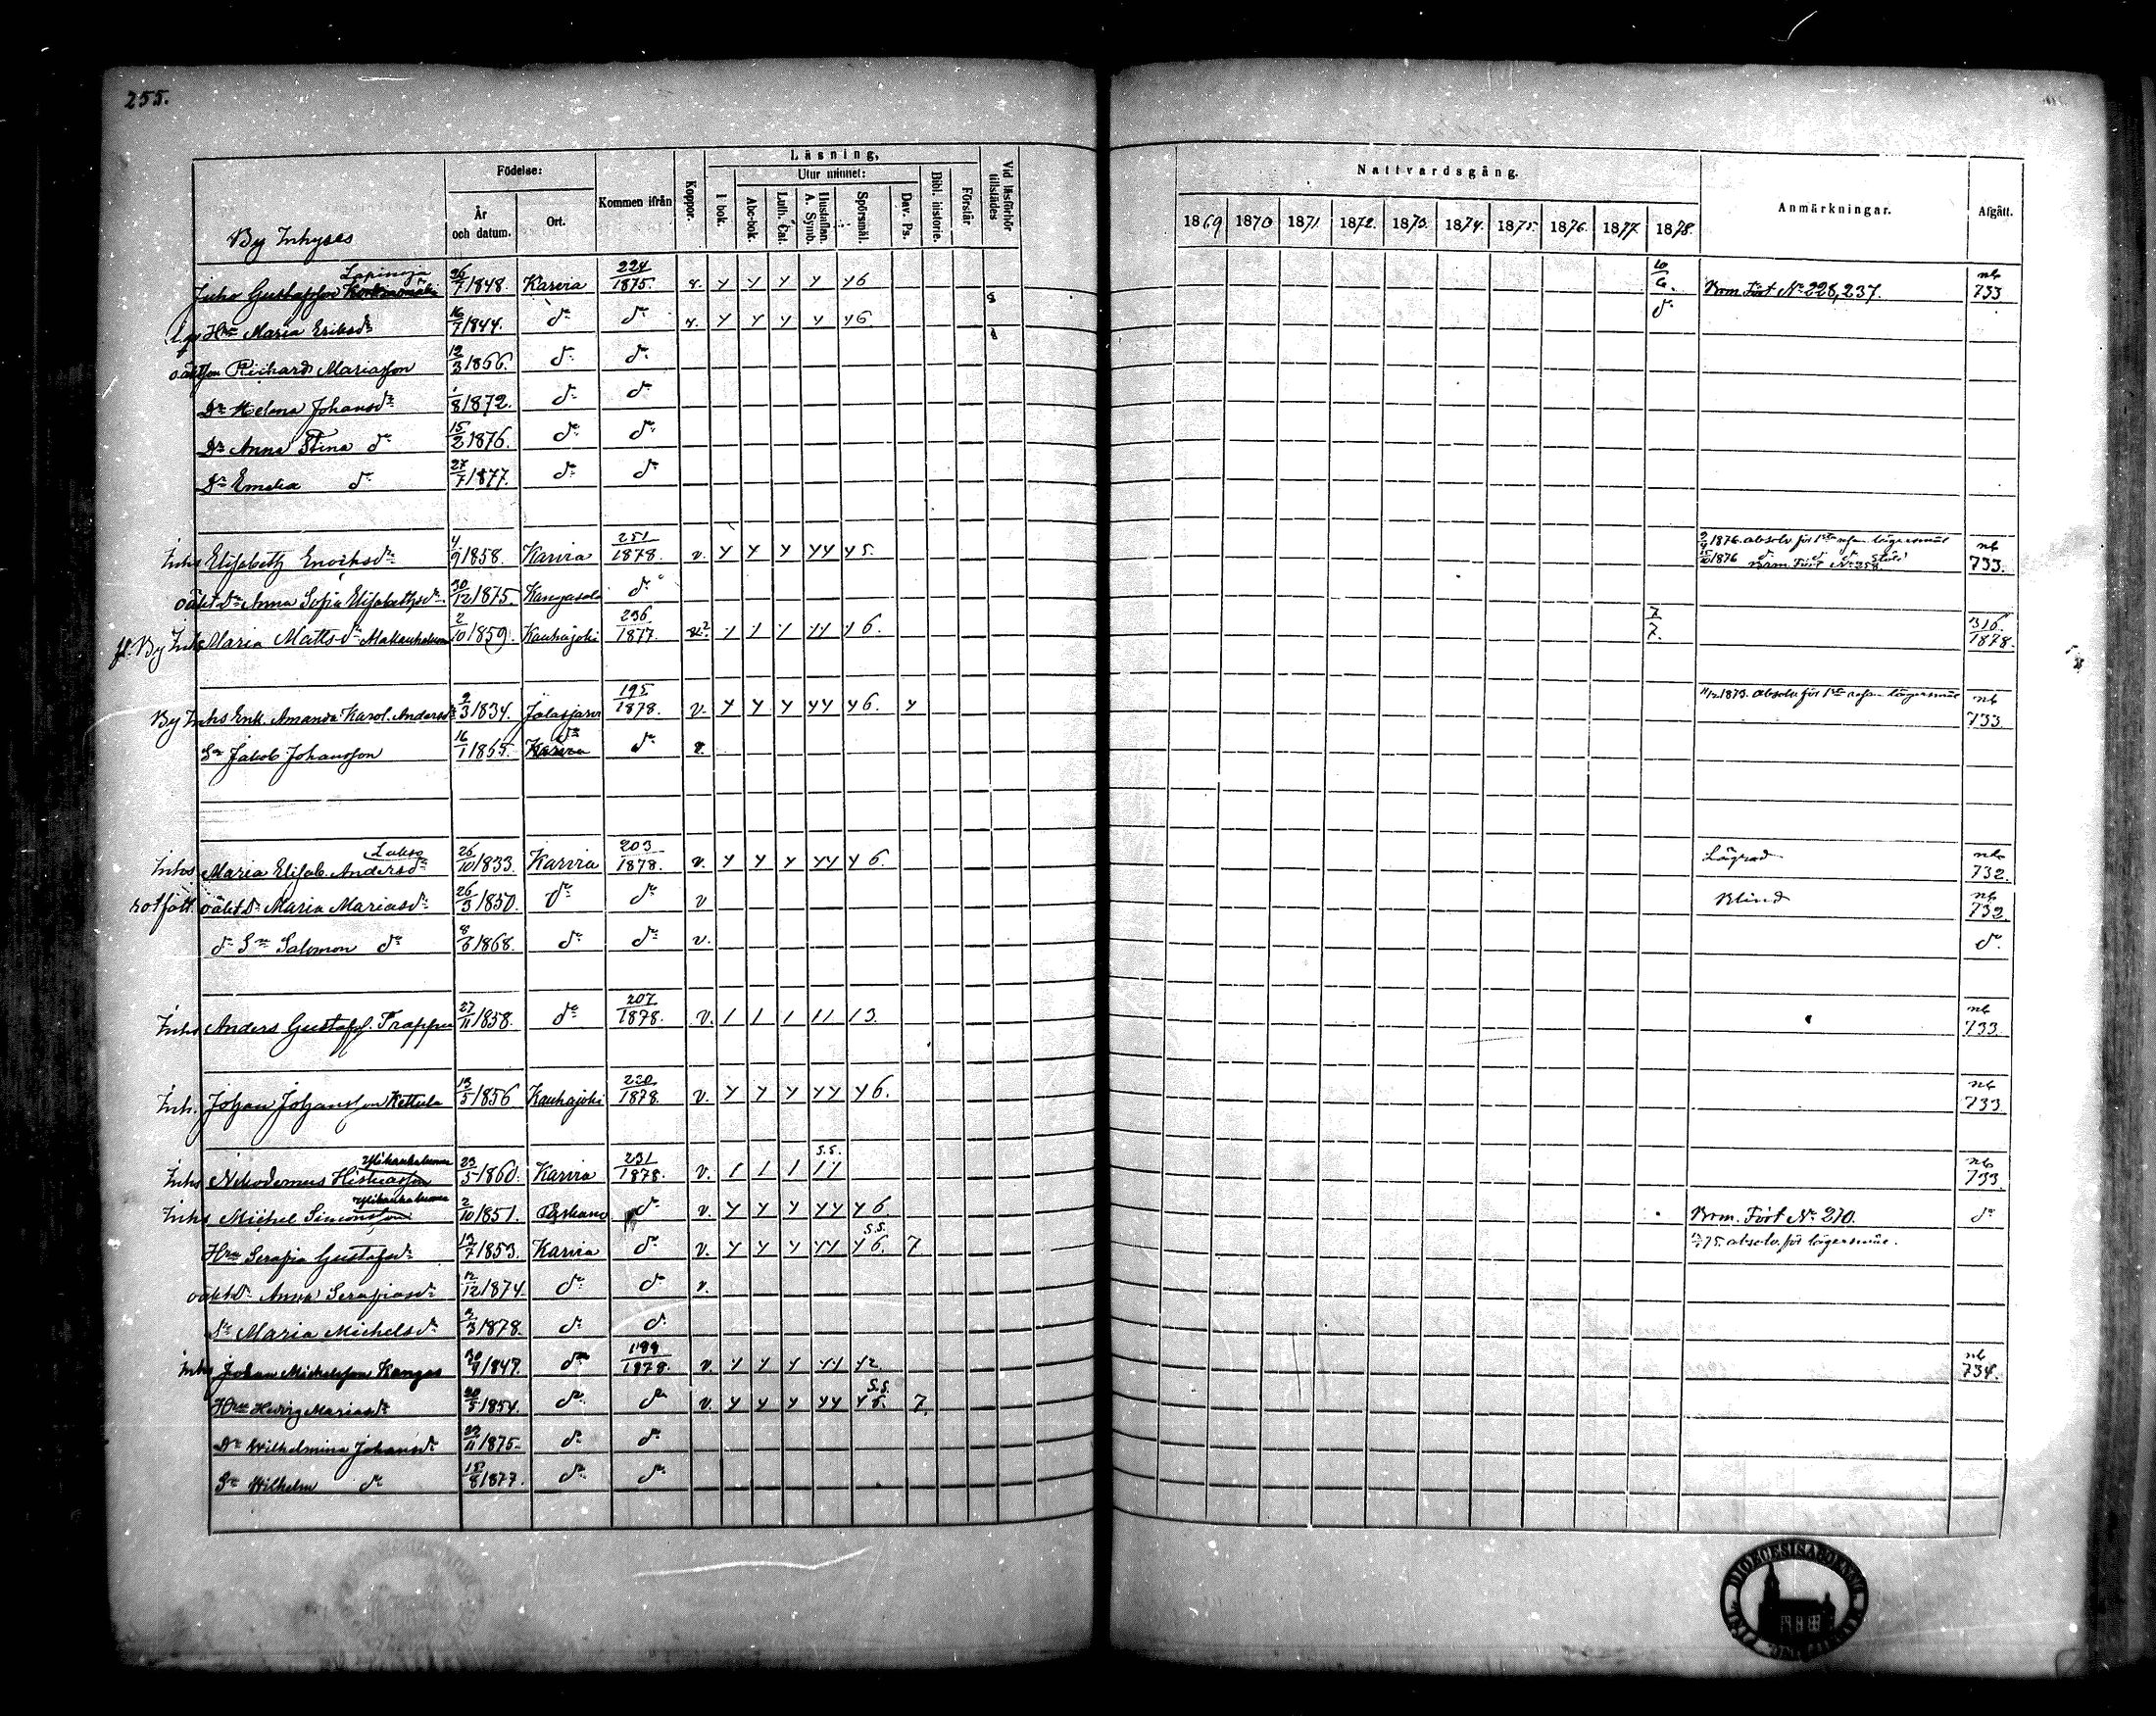 255.
Läsning,
Födelse:
Utur minnet:
År och datum.
Ort.
Kommen ifrån
Koppor.
I bok.
Abc-bok.
Luth. Cat.
Hustaflan. A. Symb.
Spörsmål.
Dav. Ps.
Bibl. historie.
Förstår
Vid läsförhör tillstädes
Nattvardsgång.
1869 1870 1871. 1872. 1873. 1874. 1875. 1876. 1877. 1878.
Anmärkningar.
Afgått.
By Inhyses
Juho Gustafsson Lapinoja 26/7 1848. Karvia 224/1875. v. y y y y y6 10/6. Brm. Fört No 228, 237. nb 733
Hru Maria Eriksdr 16/7 1844. do do v. y y y y y6 do
oäkt son Richard Mariasson 12/3 1866. do do
Dr Helma Johansdr /8 1872. do do
Dr Anna Stina do 15/2 1876. do do
Dr Emelia do 27/7 1877. do do
Inhs Elisabeth Enoksdr 4/9 1858. Karvia 251/1878. v. y y y yy y5. 1876. absolv. för 1sta resan lägersmål nb 733.
oäkt. Dr Anna Sofia Elisabethsdr 30/12 1875. Kangasala do
By Inhs Maria Mattsdr 2/10 1859. Kauhajoki 236/1877. y6. 7/7. 316./1878.
By Inhs Enk. Amanda Karol. Andersdr 2/3 1834. Jalasjärvi 195/1878. v. y y y yy y6. y 11/12 1873. absolv. för 1sta resan lägersmål nb 733
Sn Jakob Johansson 16/1 1865. do do v.
Inhs Maria Elisab. Andersdr 26/10 1833. Karvia 203/1878. v. y y y yy y6. Lägrad nb 732.
rotfatt. oäkt Dr Maria Mariasdr 26/3 1850. do do v Blind nb 732.
do Sn Salomon do 8/6 1868. do do v. do
Inhs Anders Gustafss. Trappu 27/11 1858. do 207/1878. v. 1 1 1 11 13. nb 733.
Inh. Johan Johansson Kettula 13/5 1856 Kauhajoki 220/1878. v. y y y yy y6. nb 733
Inhs Nikodemus 23/5 1860. Karvia 231/1878. v. 1 1 1 s.s. nb 733.
Inhs Michel Simonsson 2/10 1851. Parkano do v. y y y yy y6 Brm. Fört No 270. do
Hru Serafia Gustafsdr 13/7 1853. Karvia do v. y y y yy s.s. y6. 7 75. absolv. för lägersmål.
oäkt Dr Anna Serafiasdr 12/12 1874. do do v.
Dr Maria Michelsdr 3/3 1878. do do
Inhs Johan Michelsson Kangas 20/9 1847. do 199/1878. v. y y y yy y2. nb 734.
Hru Hedvig Mariasdr 20/5 1854. do do v. y y y yy s.s. y6. 7.
Dr Wilhelmina Johansdr 29/11 1875. do do
Sn Wilhelm do 15/8 1877. do do